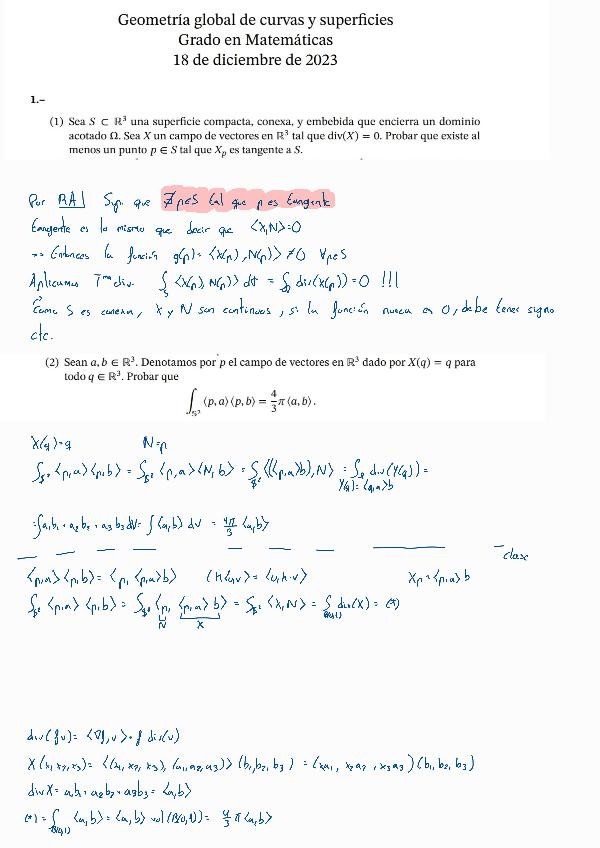 Geometría global de curvas y superficies
Grado en Matemáticas
18 de diciembre de 2023
1.–
(1) Sea S ⊂ ℝ³ una superficie compacta, conexa, y embebida que encierra un dominio
acotado Ω. Sea X un campo de vectores en ℝ³ tal que div(X) = 0. Probar que existe al
menos un punto p ∈ S tal que X_p es tangente a S.
Por RA| Sup. que ∄ p∈S tal que p es tangente
tangente es lo mismo que decir que <X,N>=0
→ Entonces la función g(p)= <X(p), N(p)> ≠0 ∀p∈S
Aplicamos Tma div. ∫_S <X(p), N(p)> dA = ∫_Ω div(X(p)) = 0 !!!
Como S es conexa, X y N son continuos, si la función nunca es 0, debe tener signo
cte.
(2) Sean a, b ∈ ℝ³. Denotamos por p el campo de vectores en ℝ³ dado por X(q) = q para
todo q ∈ ℝ³. Probar que
∫_{S²} ⟨p, a⟩ ⟨p, b⟩ = 4/3 π ⟨a, b⟩.
X(q)=q N=p
∫_{S²} <p,a> <p,b> = ∫_{S²} <p,a> <N,b> = ∫_{S²} <(<p,a>b), N> = ∫_Ω div(Y(q)) =
Y(q)= <q,a>b
=∫ a₁b₁ + a₂b₂ + a₃b₃ dV = ∫ <a,b> dv = 4π/3 <a,b>
clase
<p,a> <p,b> = <p, <p,a>b> (k<u,v> = <u,k·v>) X_p = <p,a> b
∫_{S²} <p,a> <p,b> = ∫_{S²} <p, <p,a> b> = ∫_{S²} <X,N> = ∫_{B(0,1)} div(X) = (*)
N X
div(fv) = <∇f,v> + f div(v)
X(x₁,x₂,x₃) = <(x₁,x₂,x₃), (a₁,a₂,a₃)> (b₁,b₂,b₃) = (x₁a₁, x₂a₂, x₃a₃)(b₁,b₂,b₃)
div X = a₁b₁ + a₂b₂ + a₃b₃ = <a,b>
(*) = ∫_{B(0,1)} <a,b> = <a,b> vol(B(0,1)) = 4/3 π <a,b>